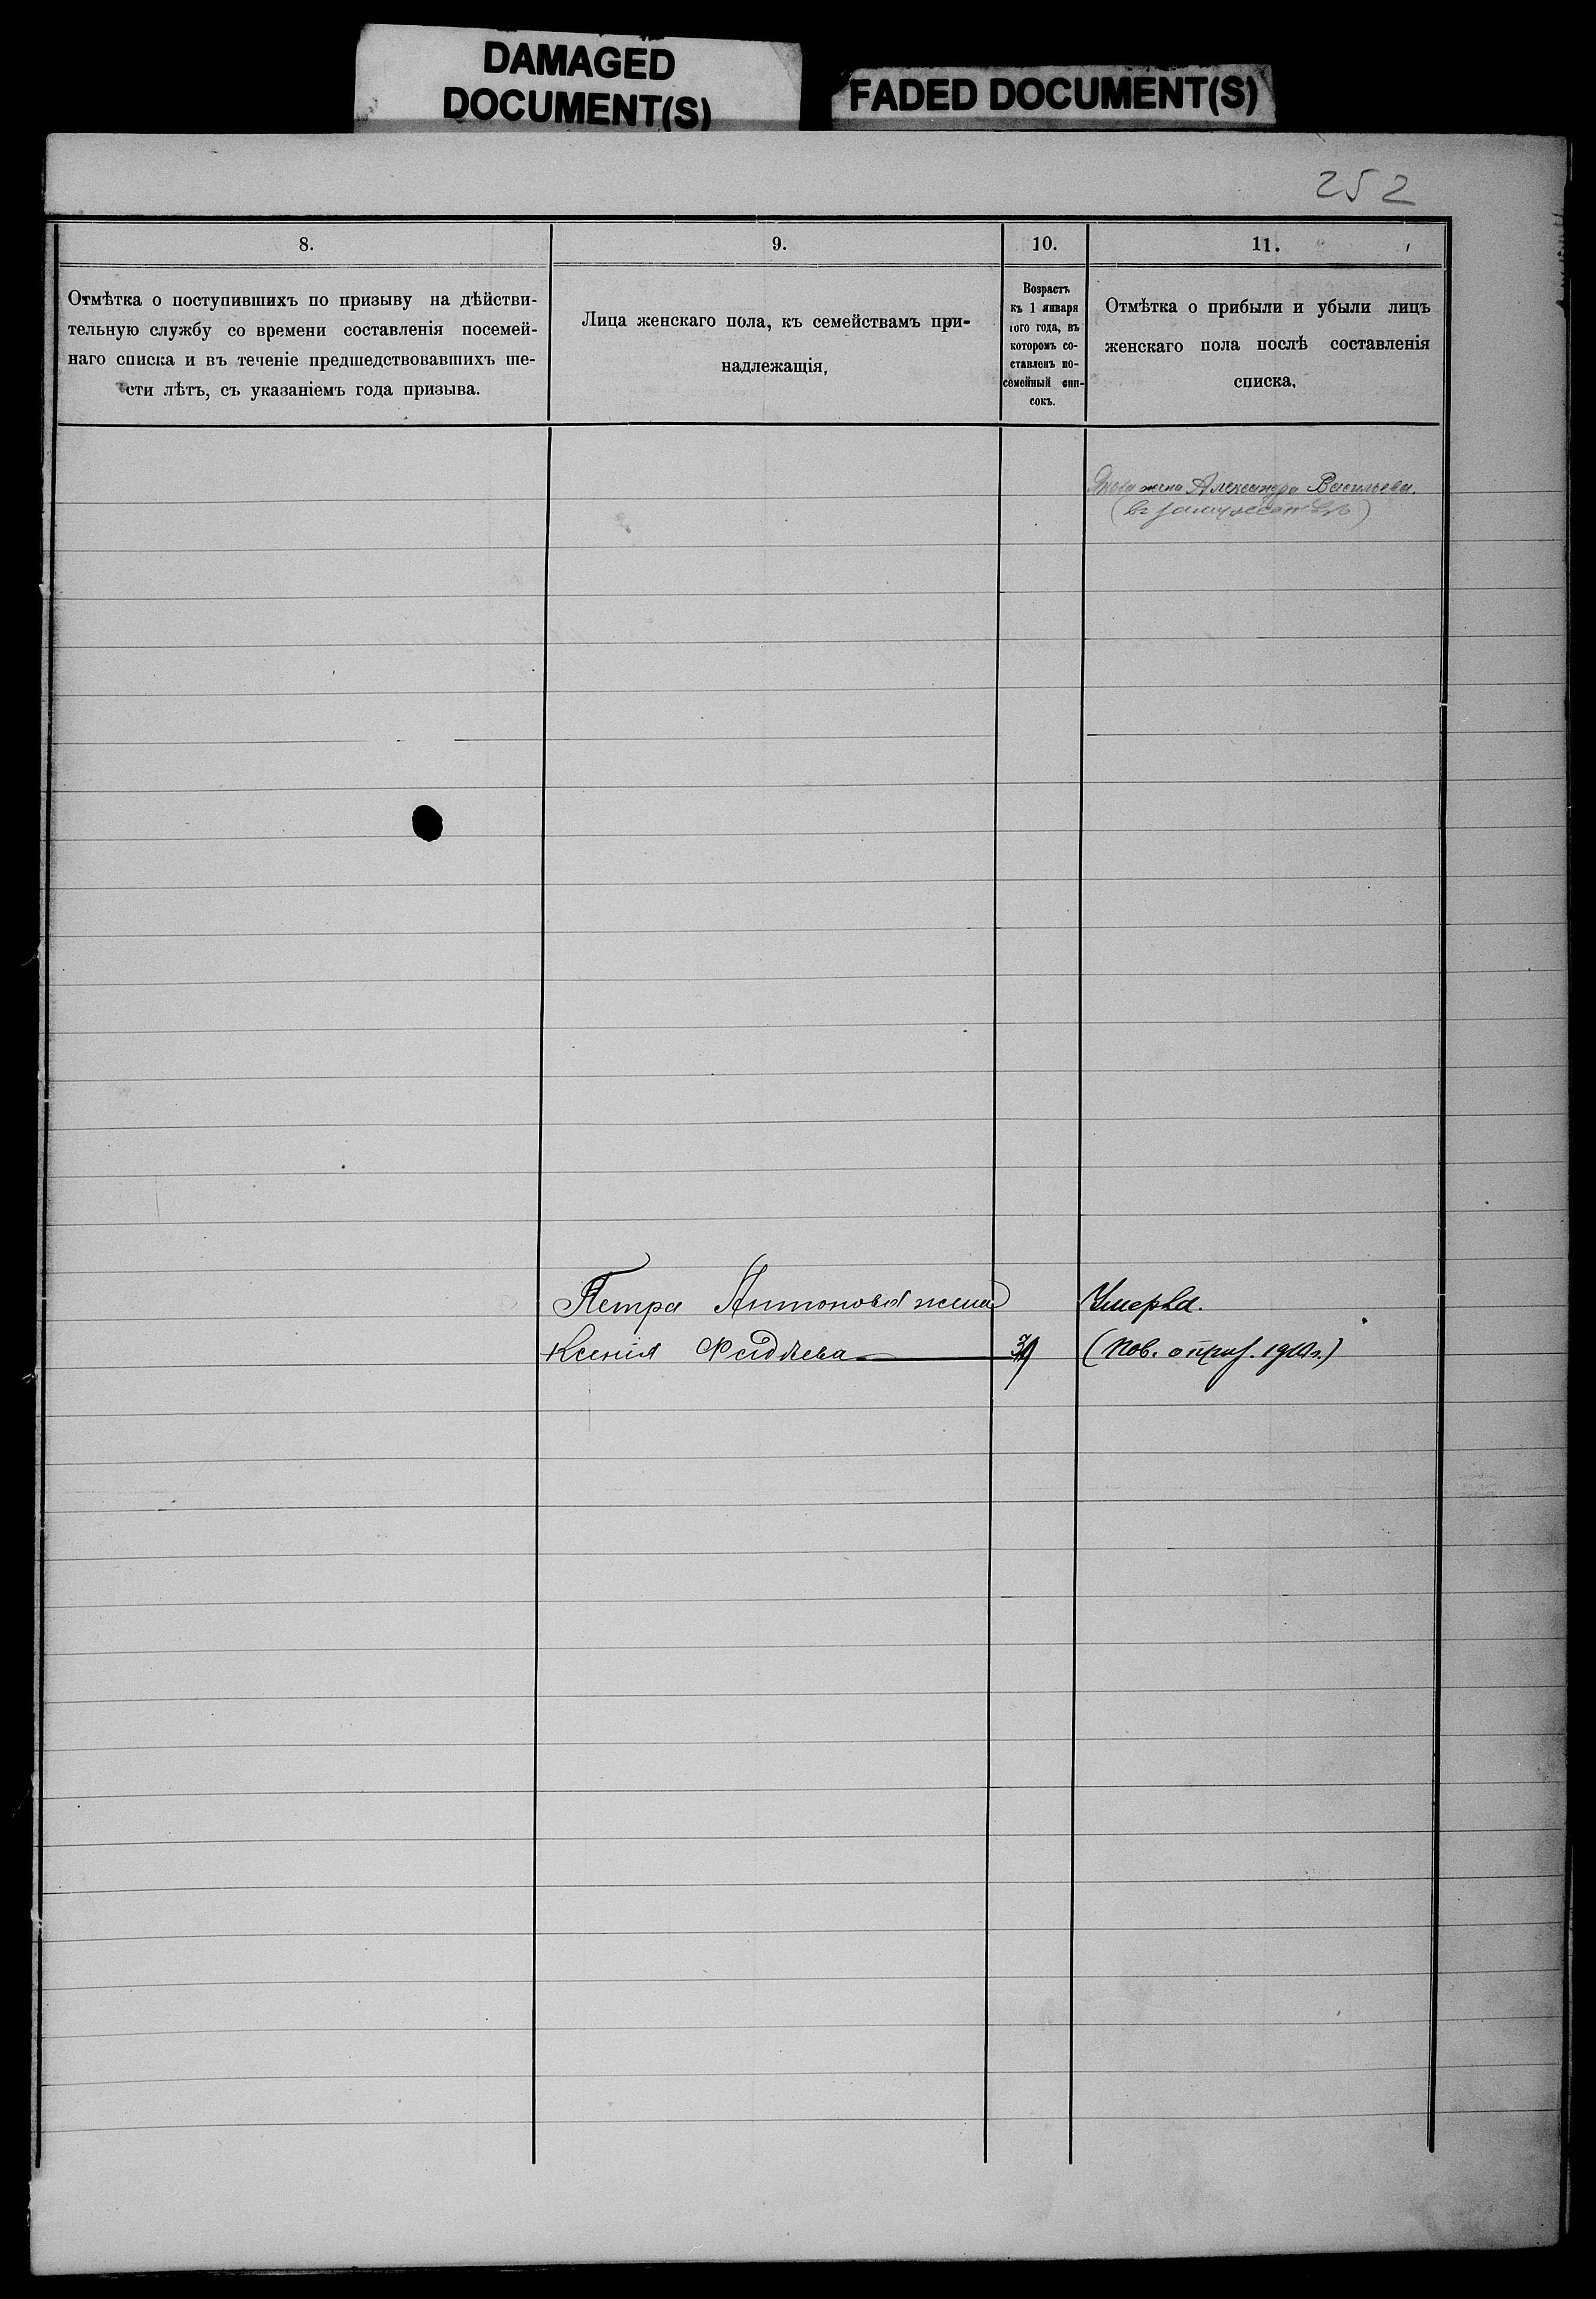 DAMAGED
DOCUMENT(S)
FADED DOCUMENT(S)
252
8.
9.
10.
11.
Отмѣтка о поступившихъ по призыву на дѣйстви-
тельную службу со времени составленія посемей-
наго списка и въ теченіе предшедствовавшихъ ше-
сти лѣтъ, съ указаніемъ года призыва.
Лица женскаго пола, къ семействамъ при-
надлежащія,
Возрастъ
къ 1 января
того года, въ
которомъ со-
ставленъ по-
семейный спи-
сокъ.
Отмѣтка о прибыли и убыли лицъ
женскаго пола послѣ составленія
списка,
жена Александра Васильева.
(въ замужествѣ)
Петра Антонова жена
Умерла.
Ксенія
(пов. о приз. г.)